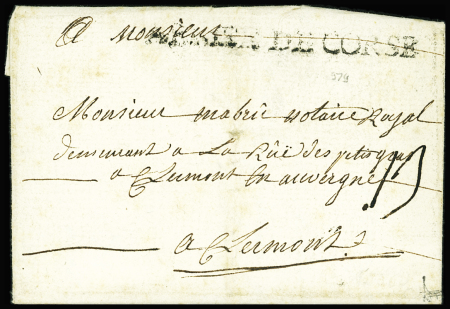 A Monsieur
ARMÉE DE CORSE
379
Monsieur mabru notaire Royal
demeurant a La Rüe des petis gras
a Clermont En auvergne
13
a Clermont